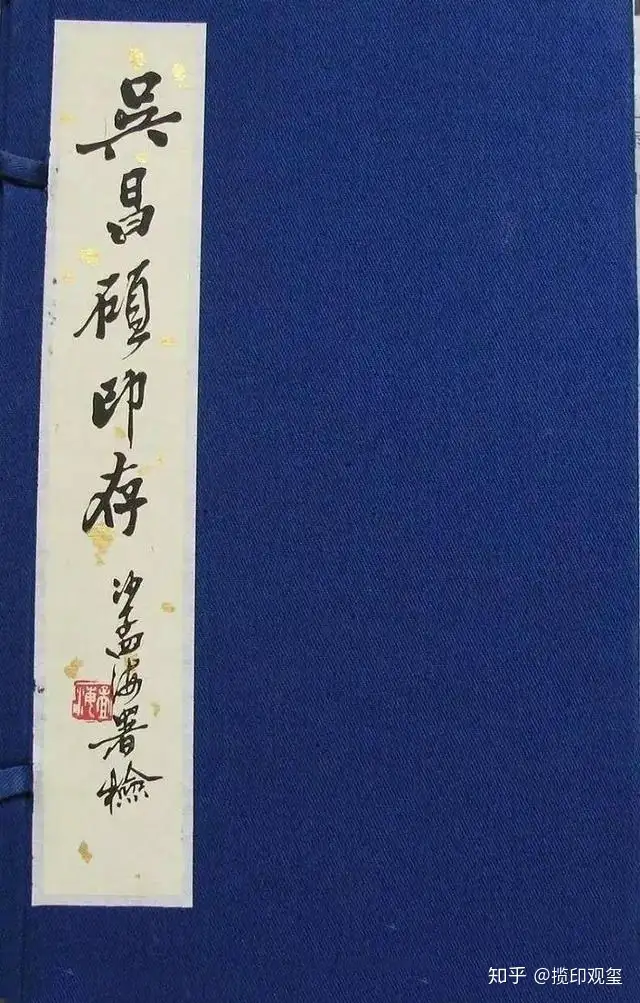 吳昌碩印存
沙孟海署檢
知乎 @揽印观玺